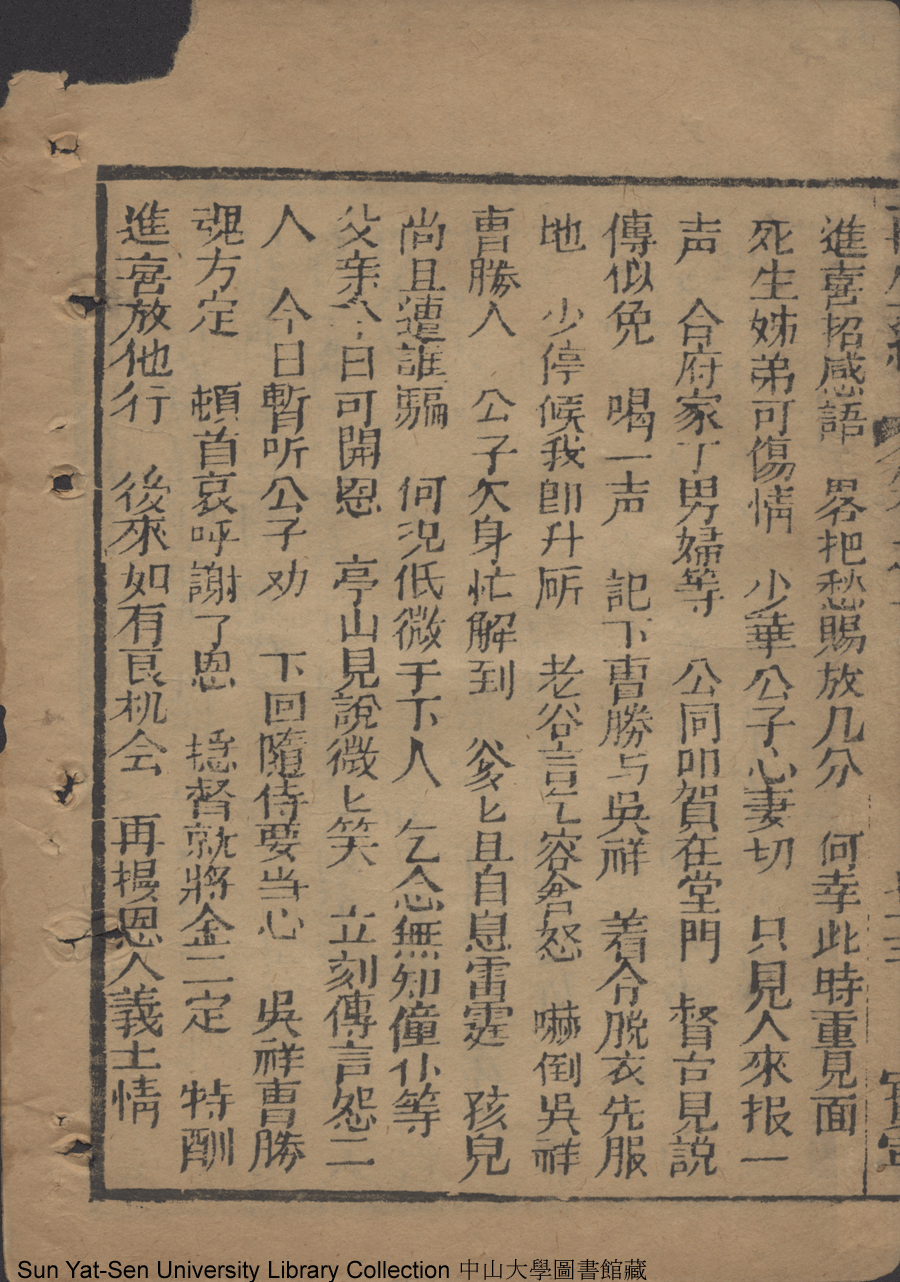 進喜招感語　畧把愁賜放几分　何幸此時重見面
死生姊弟可傷情　少華公子心妻切　只見人來报一
声　合府家丁男婦等　公同叩賀在堂門　督台見説
傳似免　喝一声　記下曹勝与吳祥　着令脫衣先服
地　少停候我即升厛　老谷言乞容怒　嚇倒吳祥
曹勝人　公子欠身忙解到　爹匕且自息雷霆　孩兒
尚且遭誰騙　何况低微于下人　乞念無知僮仆等
父亲今日可開恩　亭山見說微匕笑　立刻傳言怨二
人　今日暫听公子劝　下回隨侍要当心　吳祥曹勝
魂方定　頓首哀呼謝了恩　揔督就將金二定　特酬
進喜放他行　後來如有良机会　再揚恩人義士情
Sun Yat-Sen University Library Collection 中山大學圖書館藏